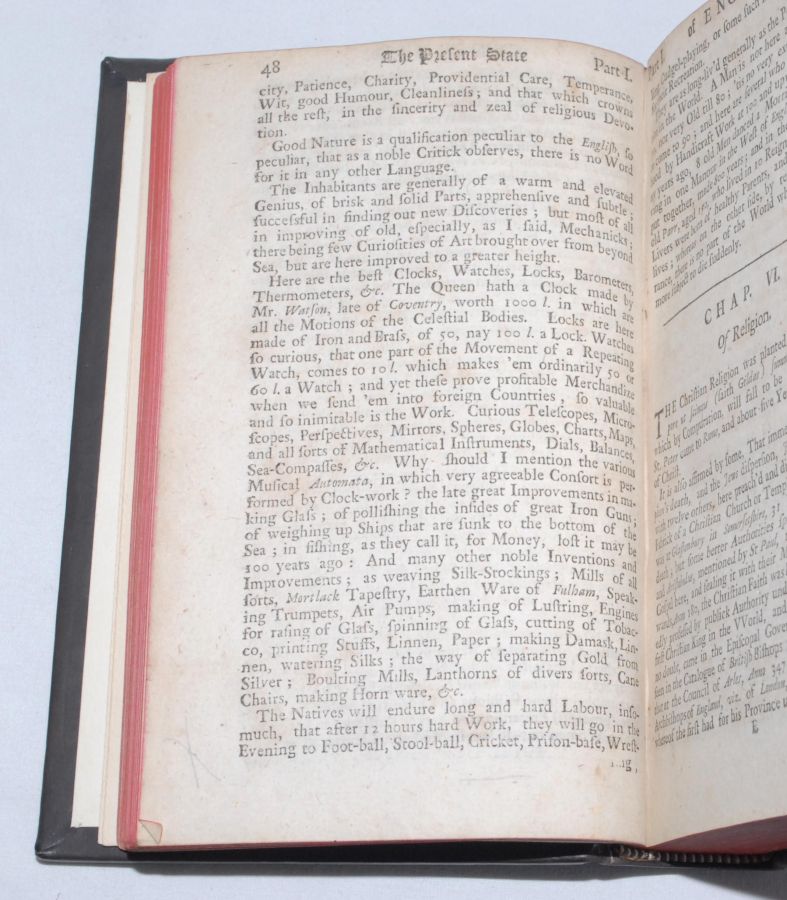 48 The Preſent State Part I.
city, Patience, Charity, Providential Care, Temperance,
Wit, good Humour, Cleanlineſs; and that which crowns
all the reſt, in the ſincerity and zeal of religious Devo-
tion.
Good Nature is a qualification peculiar to the Engliſh, ſo
peculiar, that as a noble Critick obſerves, there is no Word
for it in any other Language.
The Inhabitants are generally of a warm and elevated
Genius, of brisk and ſolid Parts, apprehenſive and ſubtle;
ſucceſsful in finding out new Diſcoveries; but moſt of all
in improving of old, eſpecially, as I ſaid, Mechanicks;
there being few Curioſities of Art brought over from beyond
Sea, but are here improved to a greater height.
Here are the beſt Clocks, Watches, Locks, Barometers,
Thermometers, &c. The Queen hath a Clock made by
Mr. Watſon, late of Coventry, worth 1000 l. in which are
all the Motions of the Celeſtial Bodies. Locks are here
made of Iron and Braſs, of 50, nay 100 l. a Lock. Watches
ſo curious, that one part of the Movement of a Repeating
Watch, comes to 10 l. which makes 'em ordinarily 50 or
60 l. a Watch; and yet theſe prove profitable Merchandize
when we ſend 'em into foreign Countries, ſo valuable
and ſo inimitable is the Work. Curious Teleſcopes, Micro-
ſcopes, Perſpectives, Mirrors, Spheres, Globes, Charts, Maps,
and all ſorts of Mathematical Inſtruments, Dials, Balances,
Sea-Compaſſes, &c. Why ſhould I mention the various
Muſical Automata, in which very agreeable Conſort is per-
formed by Clock-work? the late great Improvements in ma-
king Glaſs; of poliſhing the inſides of great Iron Guns;
of weighing up Ships that are ſunk to the bottom of the
Sea; in fiſhing, as they call it, for Money, loſt it may be
100 years ago: And many other noble Inventions and
Improvements; as weaving Silk-Stockings; Mills of all
ſorts, Mortlack Tapeſtry, Earthen Ware of Fulham, Speak-
ing Trumpets, Air Pumps, making of Luſtring, Engines
for raſing of Glaſs, ſpinning of Glaſs, cutting of Tobac-
co, printing Stuffs, Linnen, Paper; making Damask, Lin-
nen, watering Silks; the way of ſeparating Gold from
Silver; Boulting Mills, Lanthorns of divers ſorts, Cane
Chairs, making Horn ware, &c.
The Natives will endure long and hard Labour, inſo-
much, that after 12 hours hard Work, they will go in the
Evening to Foot-ball, Stool-ball, Cricket, Priſon-baſe, Wreſt-
ing,
Part I. of ENG
Cudgel-playing, or ſome ſuch
Recreation.
long-liv'd generally as the
the World. A Man is not here
very Old till 80; 'tis no very
come to 90; and here are ſeveral who
by Handicraft Work at 100 and up
years ago, 8 old Men danced a Morrice
in one Mannor in the Weſt of
together,
old Parr, aged 152, who lived in 10 Reigns
Livers were born of healthy Parents, and
lives; whereas on the other ſide, by
there is no part of the World
more ſubject to die ſuddenly.
CHAP. VI.
Of Religion.
THE Chriſtian Religion was planted
(ſaith Gildas)
which by Computation, will fall to be
St. Peter came to Rome, and about five Ye
of Chriſt.
It is alſo affirmed by ſome, That
death, and the Jews diſperſion,
with twelve others, here preach'd and
Fabrick of a Chriſtian Church or Temp
was at Glaſtenbury in Somerſetſhire, 31
death; but ſome better Authorities
mentioned by St Paul,
Goſpel here, and ſealing it with their
the Chriſtian Faith was
profeſſed by publick Authority unde
firſt Chriſtian King in the VVorld, and
no doubt, came in the Epiſcopal Gover
in the Catalogue of Britiſh Biſhops
that at the Council of Arles, Anno 347,
Archbiſhops of England, viz. of London,
whereof the firſt had for his Province
E